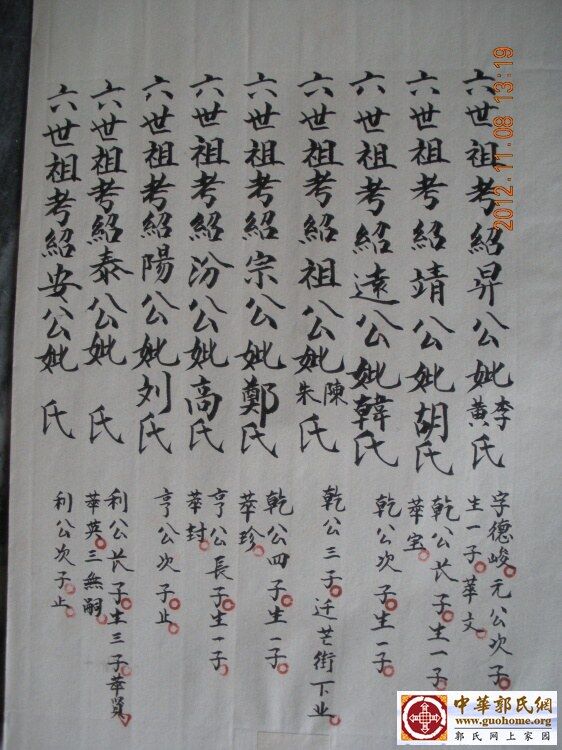 六世祖考紹昇公妣李黄氏
字德峻元公次子
生一子華文
六世祖考紹靖公妣胡氏
乾公长子生一子
華宝
六世祖考紹遠公妣韓氏
乾公次子生一子
六世祖考紹祖公妣陳朱氏
乾公三子迁芒街下业
六世祖考紹宗公妣鄭氏
乾公四子生一子
華珍
六世祖考紹汾公妣高氏
亨公長子生一子
華封
六世祖考紹陽公妣刘氏
亨公次子止
六世祖考紹泰公妣 氏
利公长子生三子華賢
華英三無嗣
六世祖考紹安公妣 氏
利公次子止
2012.11.08 13:19
中華郭氏網
www.guohome.org
郭氏网上家园